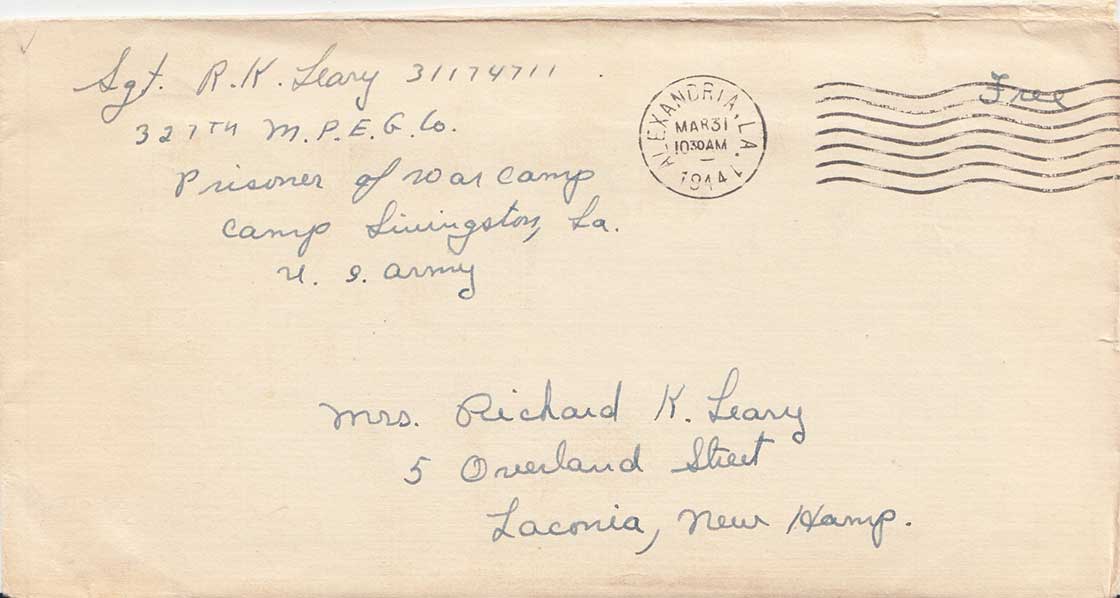 Sgt. R. K. Leary 31174711
327TH M.P.E.G. Co.
Prisoner of War Camp
Camp Livingston, La.
U. S. Army
Free
ALEXANDRIA, LA.
MAR 31
10 30 AM
1944
Mrs. Richard K. Leary
5 Overland Street
Laconia, New Hamp.